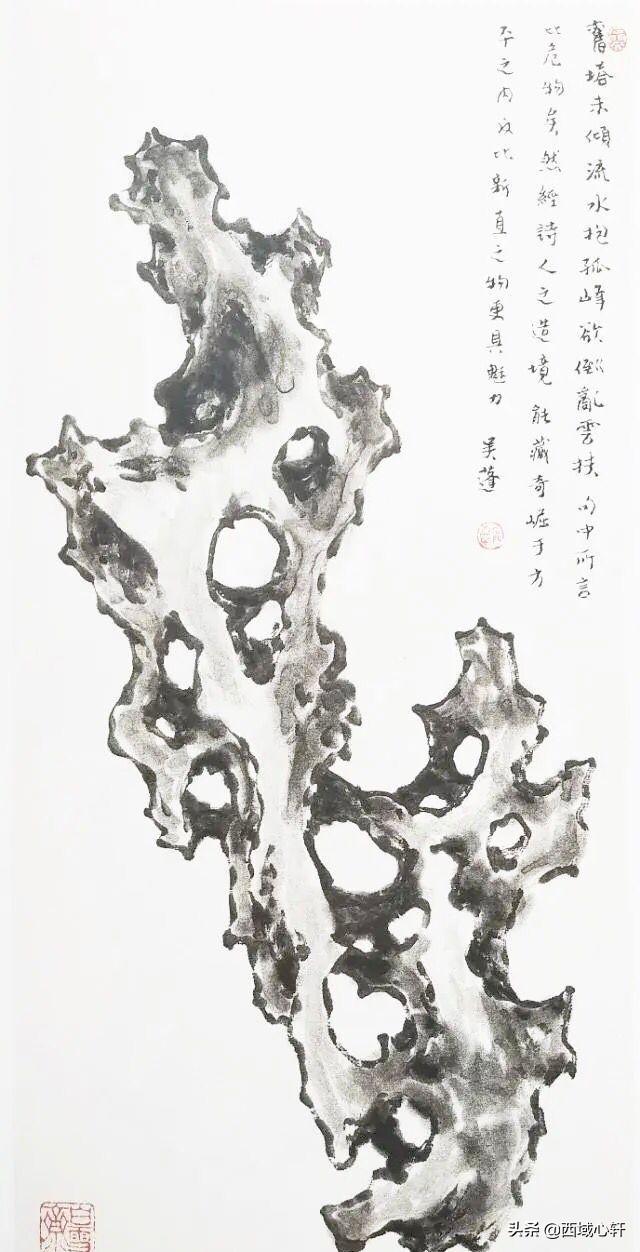 舊塔未傾流水抱孤峰欲倒亂雲扶句中所言
危物矣然經詩人之造境能藏奇崛于方
之内反比新直之物更具魅力 吴蓬
白雲齋
头条 @西域心轩